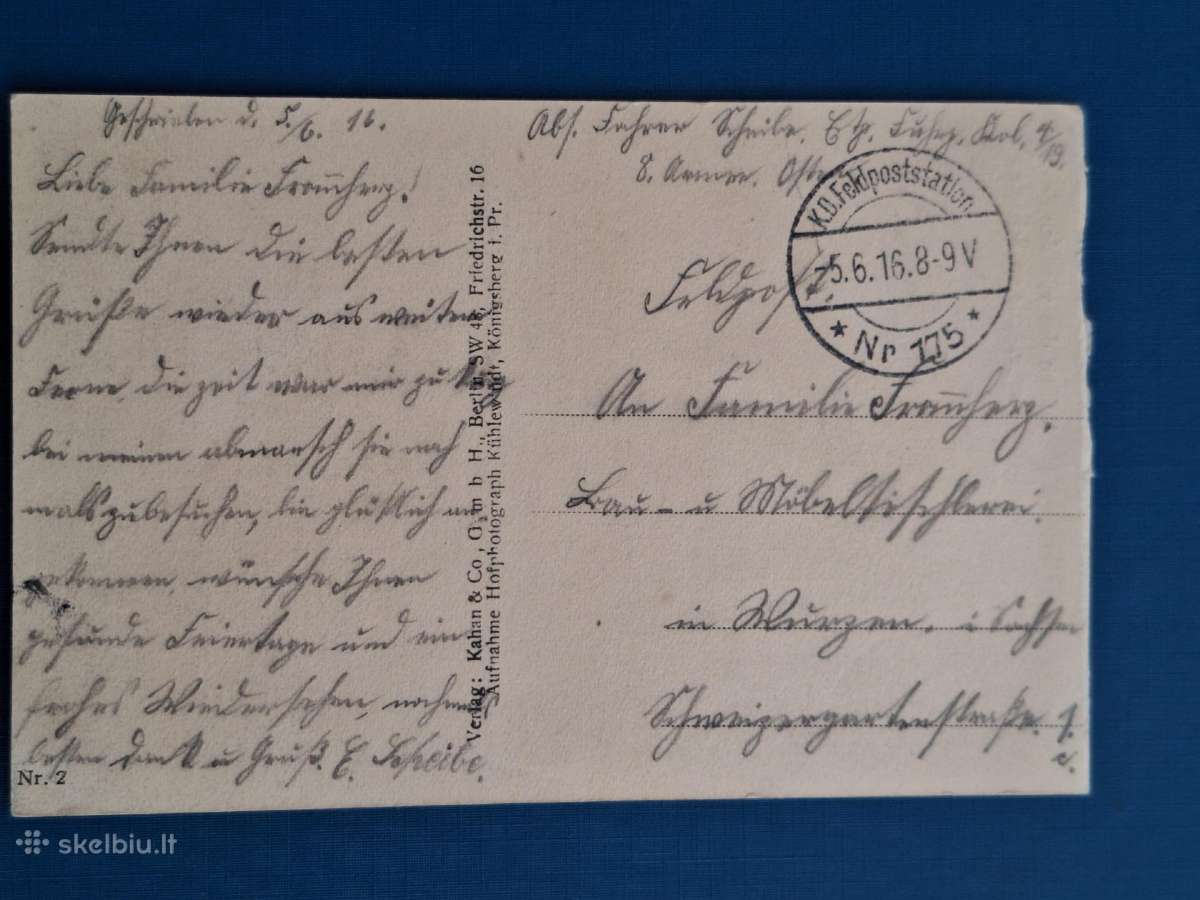 Geschrieben d. 5./6. 16.
Liebe Familie Frommherz!
Sendte Ihnen die besten
Grüße wieder aus weiten
Ferne, die zeit war mir zu
bei meinen abmarsch sie noch
mals zubesuchen, bin glüklich an
gekommen, wünsche Ihnen
gesunde Feiertage und ein
frohes Wiedersehen, nochmals
besten Dank u Gruß. E. Scheibe.
Nr. 2
Verlag: Kahan & Co., G. m b H., Berlin SW 48, Friedrichstr. 16
Aufnahme Hofphotograph Kühlewindt, Königsberg i. Pr.
Abs. Fahrer Scheibe. Etp. Fuhrp. Kol. 4/19.
8. Armee. Osten
K.D. Feldpoststation
-5.6.16.8-9V
* Nr 175 *
Feldpost.
An Familie Frommherz.
Bau- u Möbeltischlerei.
in Wurzen. i Sachsen
Schweizergartenstraße. 1.
skelbiu.lt